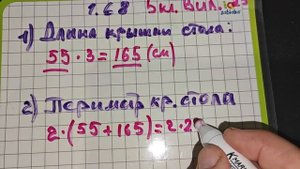 1.68 5кл. Вил.
1) Длина крышки стола:
55 · 3 = 165 (см)
2) Периметр кр. стола
2 · (55 + 165) = 2 · 2